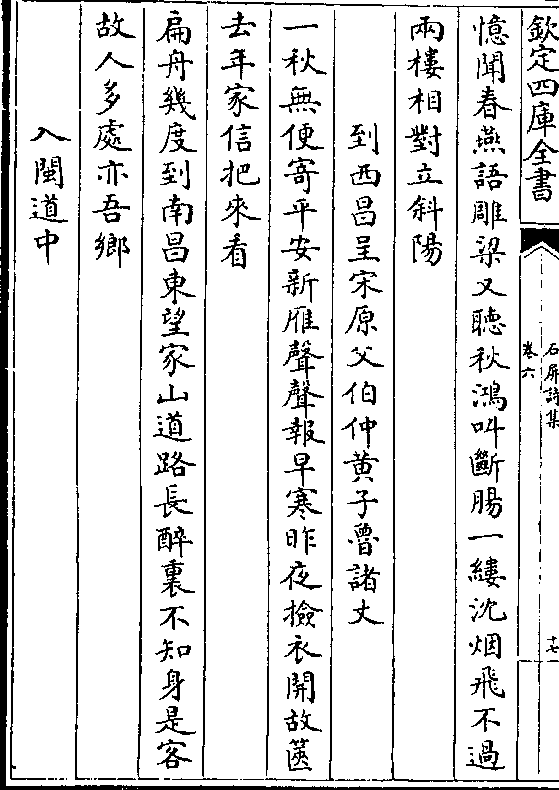 欽定四庫全書
石屏詩集
卷六
十七
憶聞春燕語雕梁又聽秋鴻叫斷腸一縷沈烟飛不過
兩樓相對立斜陽
到西昌呈宋原父伯仲黄子魯諸丈
一秋無便寄平安新雁聲聲報早寒昨夜撿衣開故篋
去年家信把來看
扁舟幾度到南昌東望家山道路長醉裏不知身是客
故人多處亦吾鄉
入閩道中